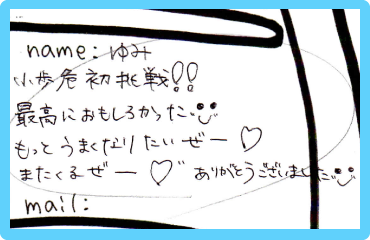 name: ゆみ
小歩危初挑戦!!
最高におもしろかった
もっとうまくなりたいぜー♡
またくるぜー♡ ありがとうございました
mail: